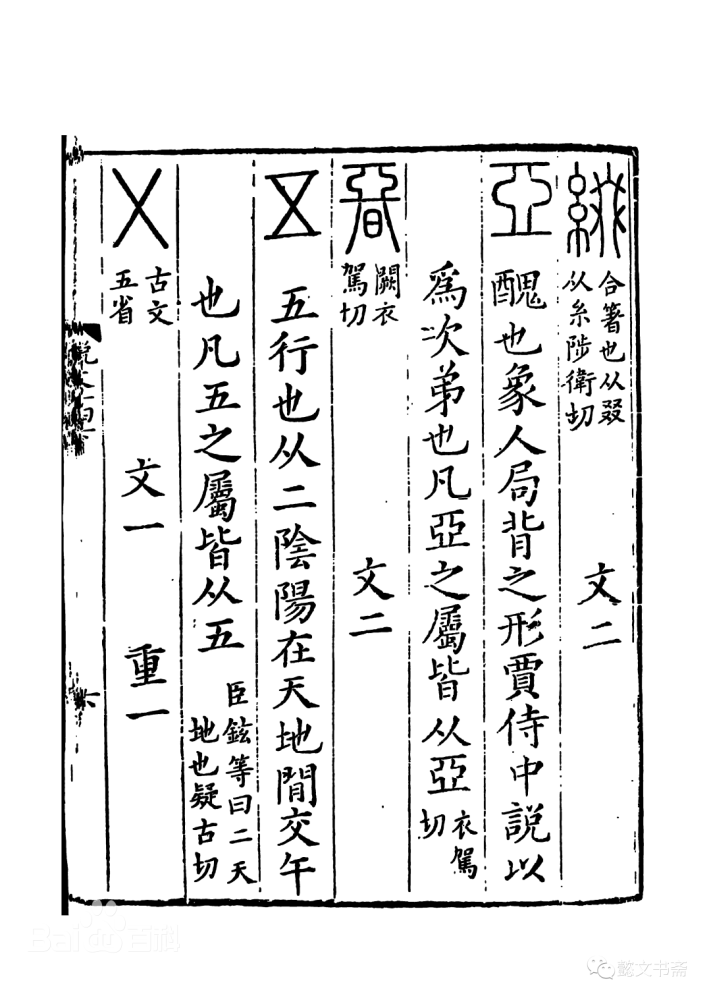 綴 合箸也从叕
从糸陟衛切 文二
亞 醜也象人局背之形賈侍中說以
為次弟也凡亞之屬皆从亞 衣駕
切
闕衣
駕切 文二
五 五行也从二陰陽在天地閒交午
也凡五之屬皆从五 臣鉉等曰二天
地也疑古切
古文
五省 文一 重一
Bai 百科
懿文书斋